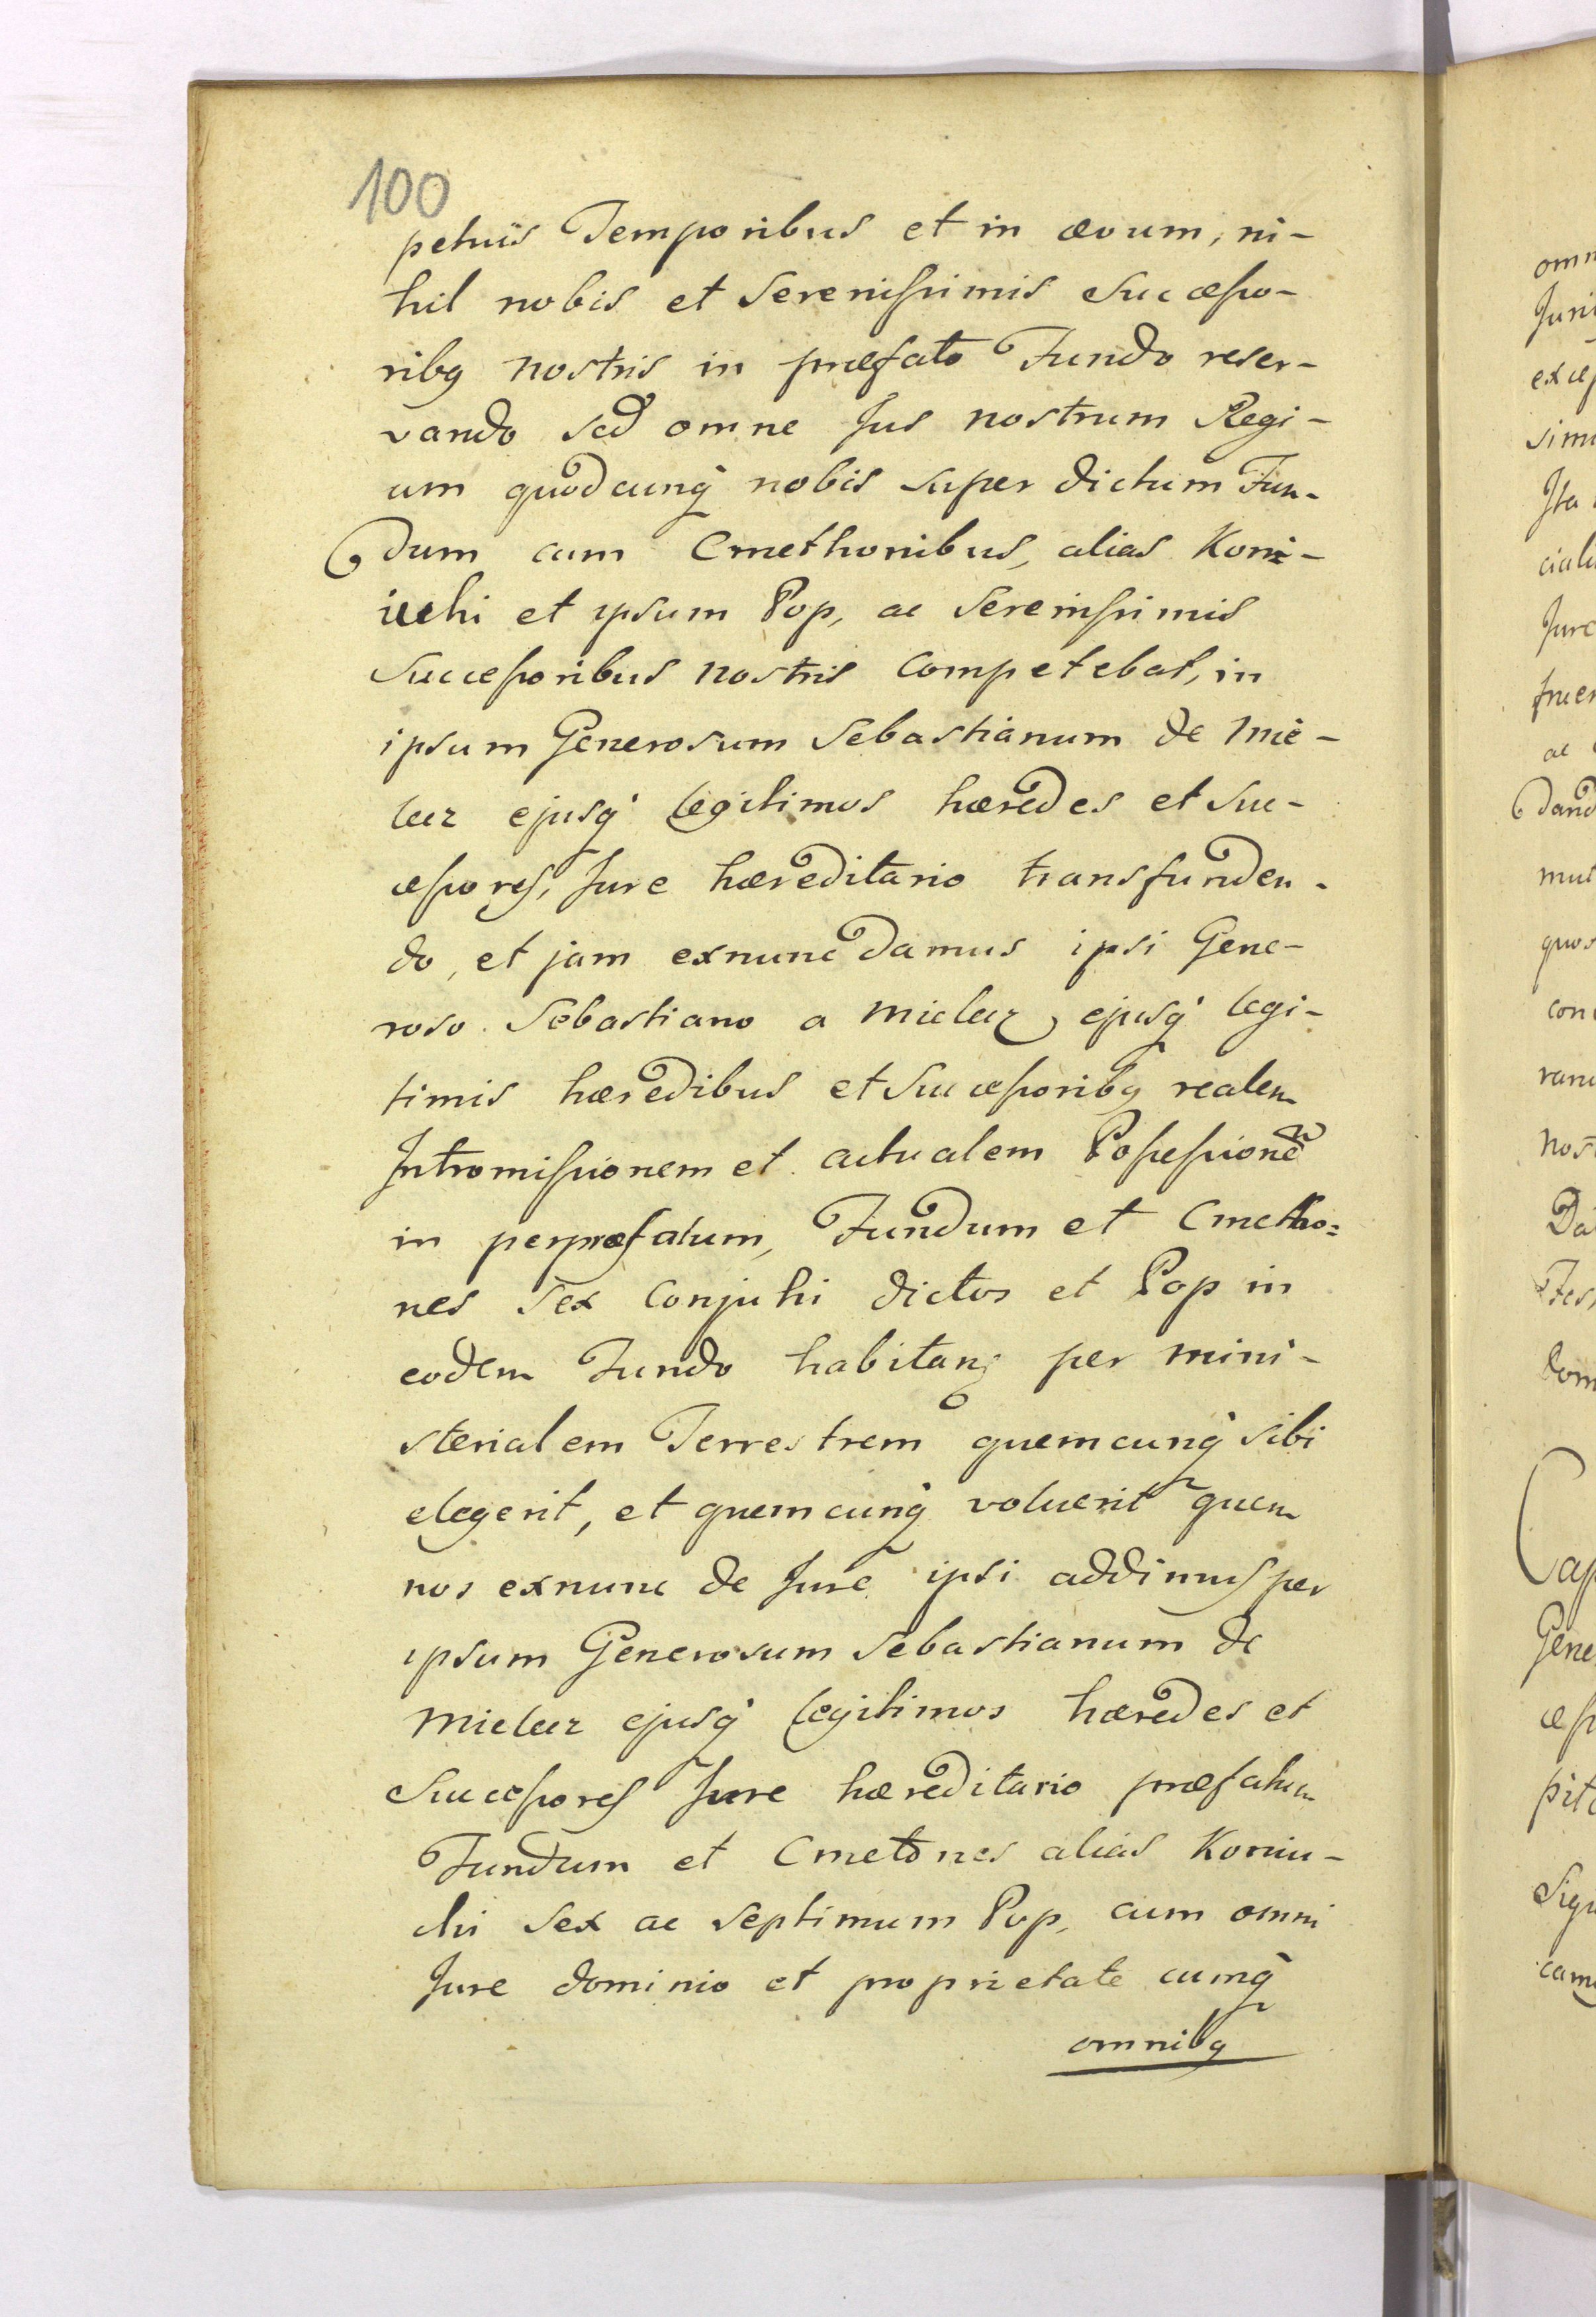 100
petuis Temporibus et in ævum, ni-
hil nobis et Serenissimis Successo-
ribq nostris in præfato Fundo reser-
vando sed omne Jus nostrum Regi-
um quodcunq nobis super dictum Fun-
dum cum Cmethonibus, alias Koni-
uchi et ipsum Pop, ac Serenissimis
Successoribus nostris competebat, in
ipsum Generosum Sebastianum de Mie-
lecz ejusq legitimos hæredes et Suc-
cessores, Jure hæreditario transfunden-
do, et jam exnunc damus ipsi Gene-
roso Sebastiano a Mielecz, ejusq legi-
timis hæredibus et Successoribq realem
Intromissionem et actualem Possessionem
in perpræfatum, Fundum et Cmetho=
nes Sex Conjuhi dictos et Pop in
eodem Fundo habitang per mini-
sterialem Terrestrem quemcunq sibi
elegerit, et quemcunq voluerit quem
nos exnunc de Jure ipsi addimus per
ipsum Generosum Sebastianum de
Mielecz ejusq legitimos hæredes et
Successores Jure hæreditario præfatum
Fundum et Cmetones alias Koniu-
chi Sex ac Septimum Pop, cum omni
Jure dominio et proprietate cumq
omnibq